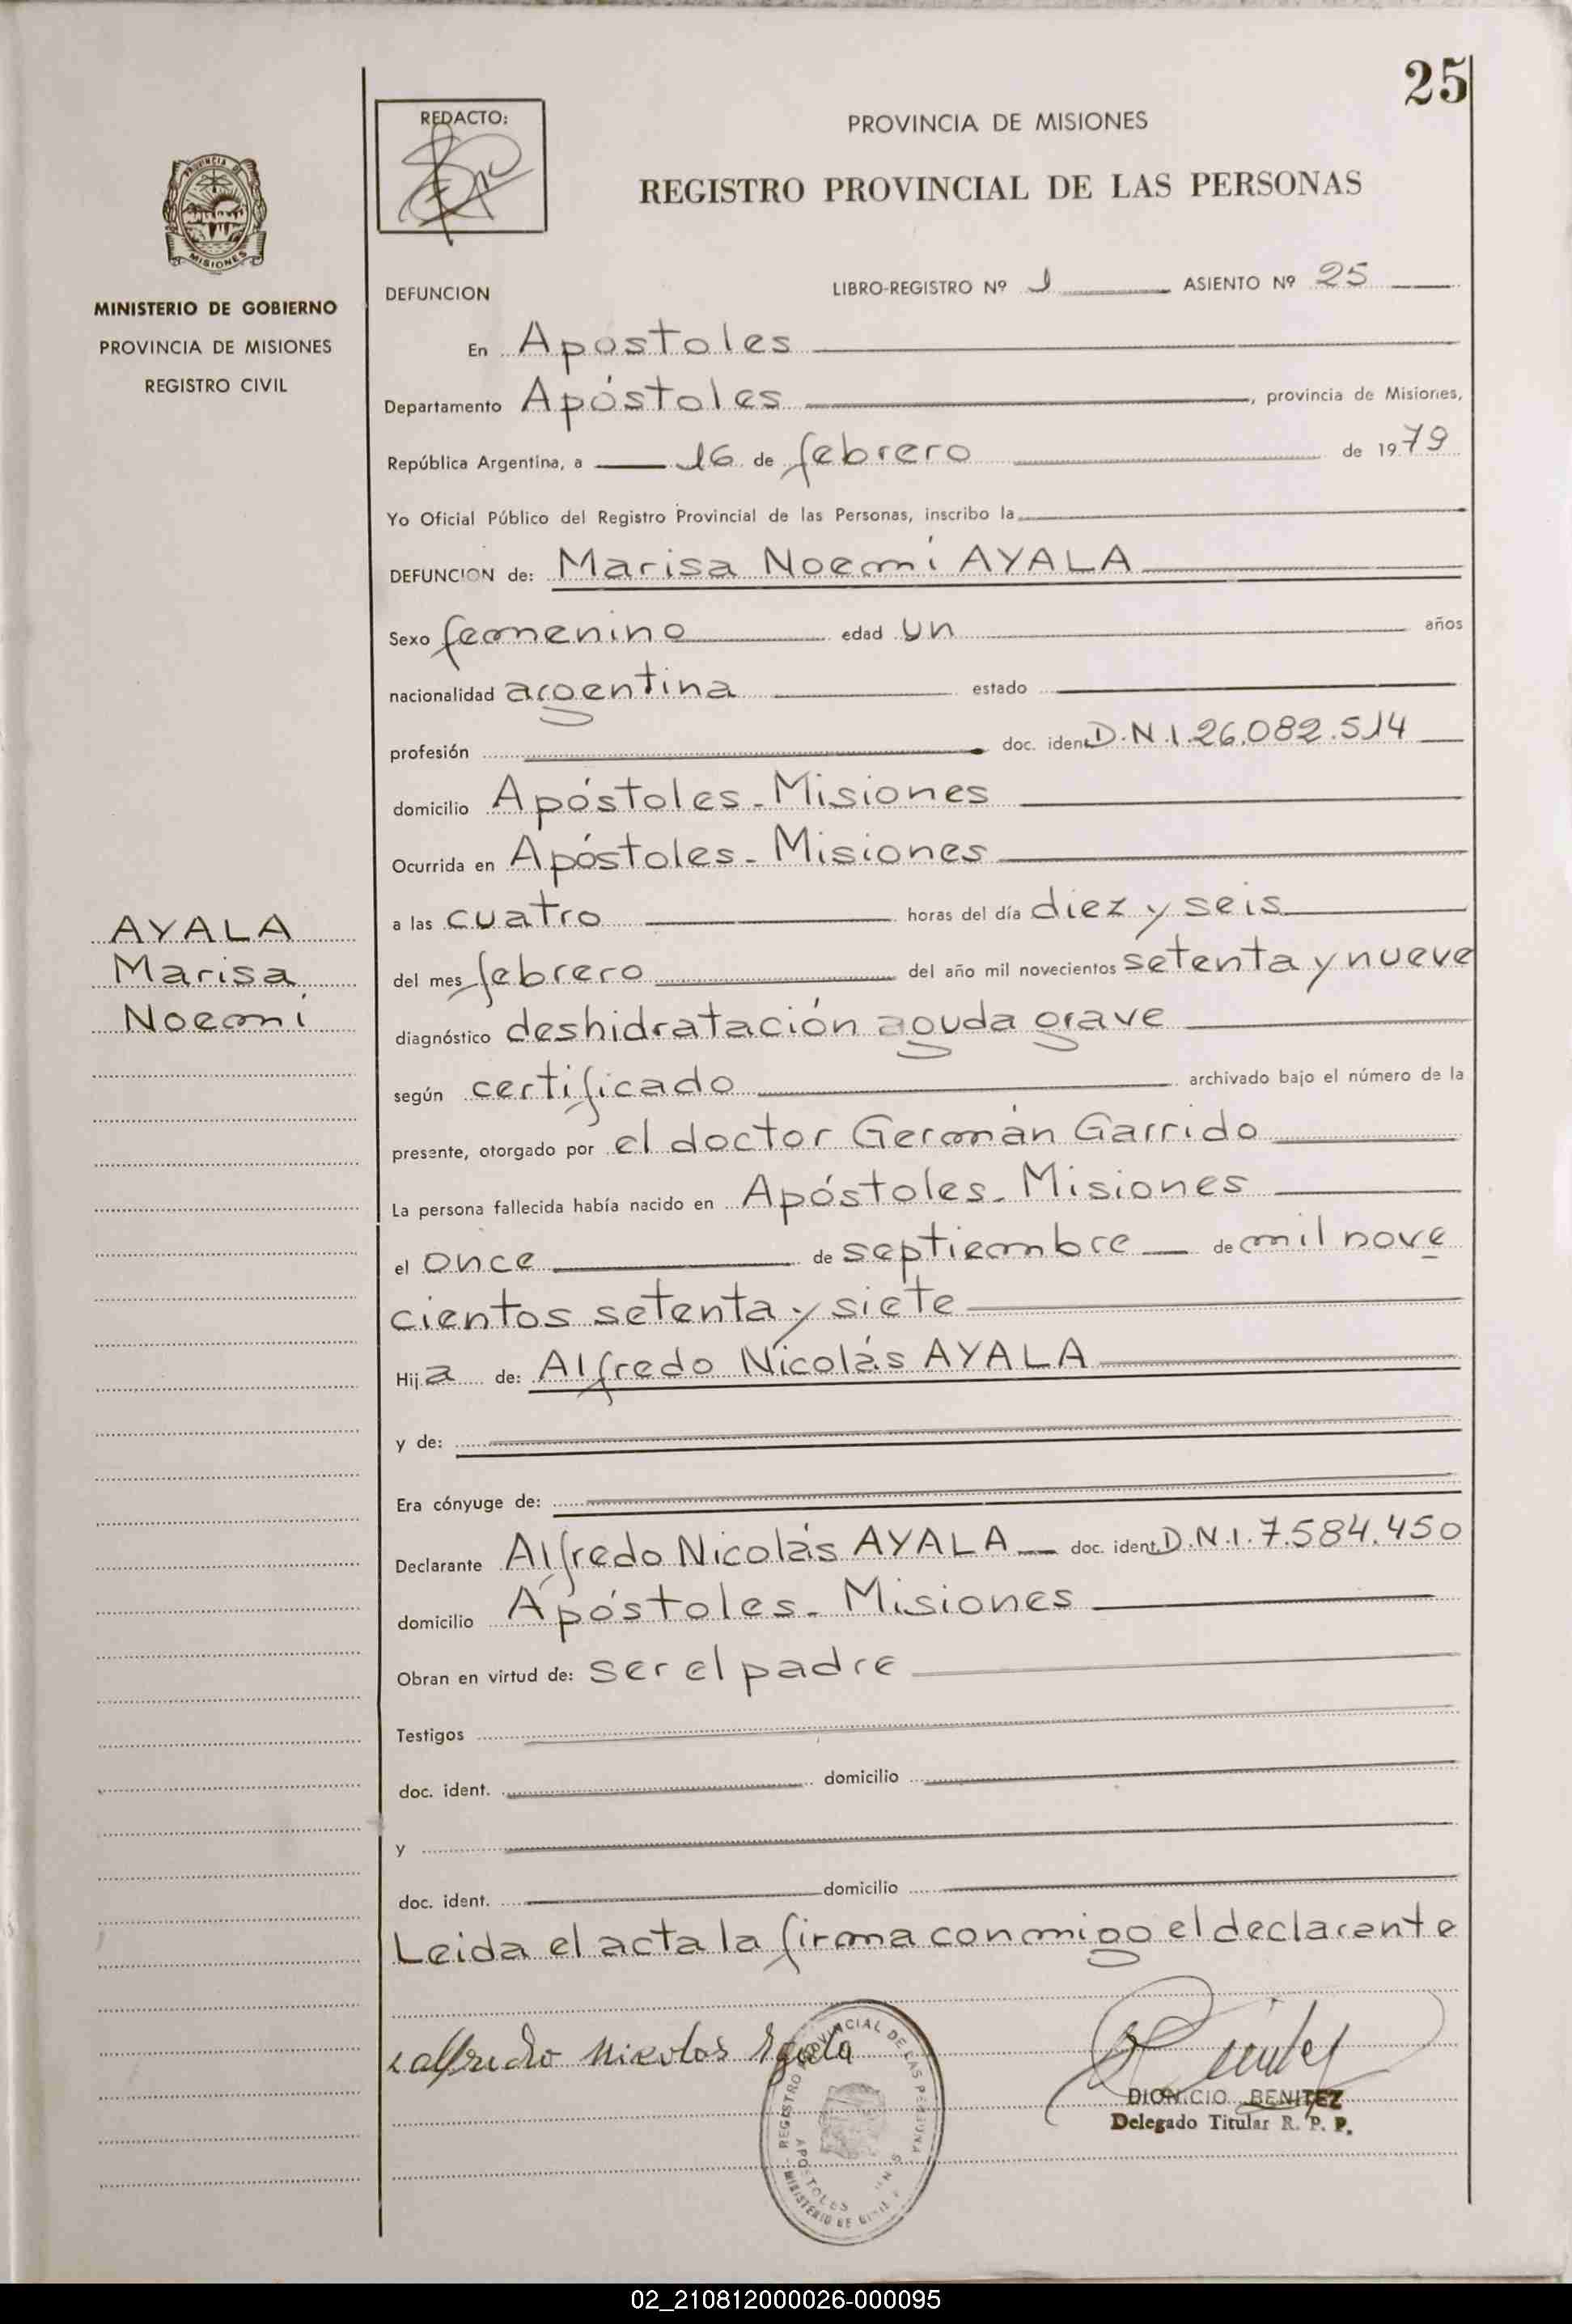 25
REDACTO:
PROVINCIA DE MISIONES
REGISTRO PROVINCIAL DE LAS PERSONAS
PROVINCIA DE
MISIONES
MINISTERIO DE GOBIERNO
PROVINCIA DE MISIONES
REGISTRO CIVIL
DEFUNCION
LIBRO-REGISTRO Nº 1 ASIENTO Nº 25
En Apóstoles
Departamento Apóstoles, provincia de Misiones,
República Argentina, a 16 de febrero de 1979
Yo Oficial Público del Registro Provincial de las Personas, inscribo la
DEFUNCION de: Marisa Noemí AYALA
Sexo femenino edad un años
nacionalidad argentina estado
profesión doc. ident. D.N.I. 26.082.514
domicilio Apóstoles - Misiones
Ocurrida en Apóstoles - Misiones
AYALA
Marisa
Noemí
a las cuatro horas del día diez y seis
del mes febrero del año mil novecientos setenta y nueve
diagnóstico deshidratación aguda grave
según certificado archivado bajo el número de la
presente, otorgado por el doctor Germán Garrido
La persona fallecida había nacido en Apóstoles - Misiones
el once de septiembre de mil nove
cientos setenta y siete
Hija de: Alfredo Nicolás AYALA
y de:
Era cónyuge de:
Declarante Alfredo Nicolás AYALA doc. ident. D.N.I. 7.584.450
domicilio Apóstoles - Misiones
Obran en virtud de: ser el padre
Testigos
doc. ident. domicilio
y
doc. ident. domicilio
Leida el acta la firma conmigo el declarante
alfredo Nicolas Ayala
REGISTRO PROVINCIAL DE LAS PERSONAS
APOSTOLES
MINISTERIO DE
DIONICIO BENITEZ
Delegado Titular R. P. P.
02_210812000026-000095